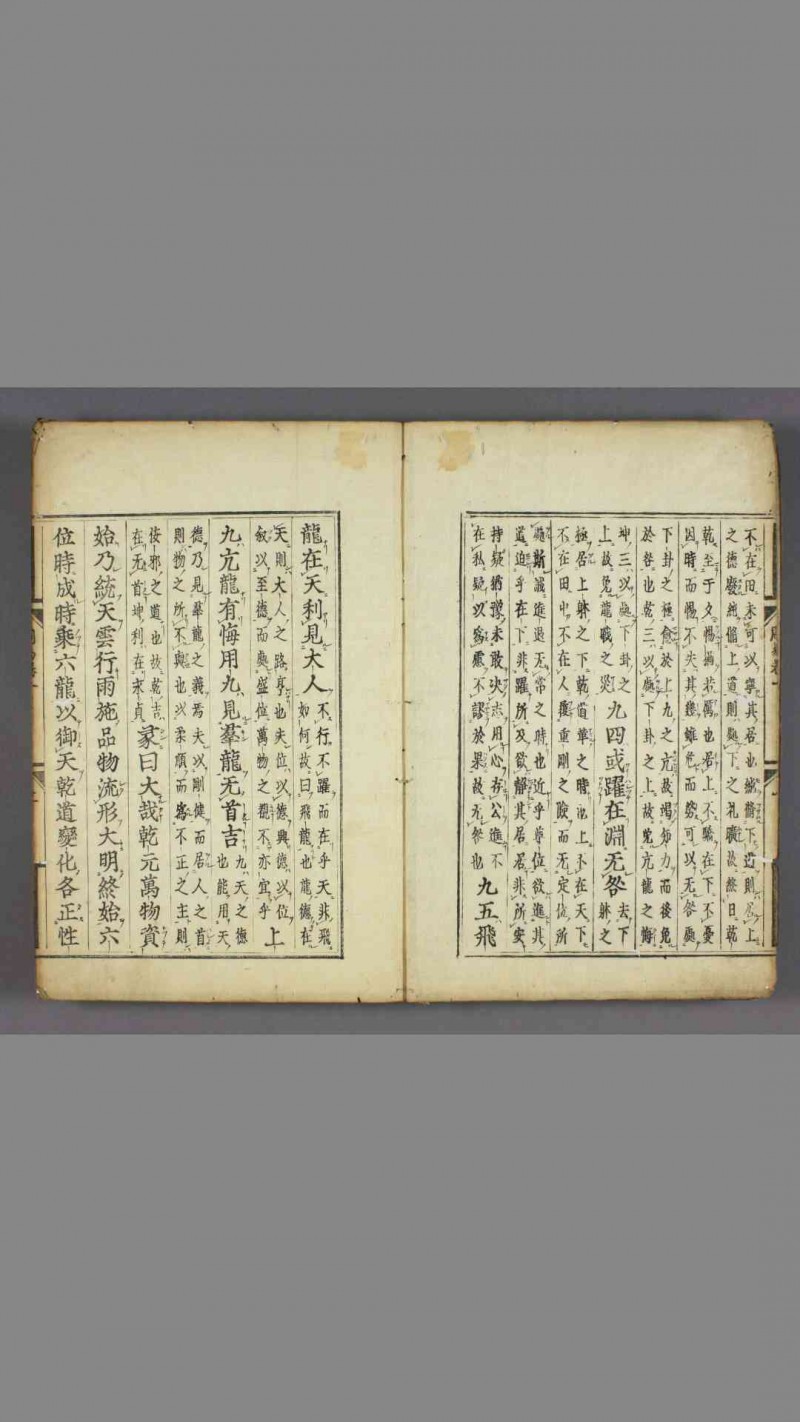 不在田未可以寧其居也純脩下道則居上
之德廢純脩上道則處下之礼曠故終日乾
乾至于夕惕猶若厲也居上不驕在下不憂
因時而惕不失其幾雖危而勞可以无咎處
下卦之極愈於上九之亢故竭知力而後免
於咎也乾三以處下卦之上故免亢龍之悔
坤三以處下卦之
上故免龍戰之災
九四或躍在淵无咎
去下
躰之
極居上躰之下乾道革之時也上不在天下
不在田中不在人履重剛之險而无定位所
處斯誠進退无常之時也近乎尊位欲進其
道迫乎在下非躍所及欲靜其居居非所安
持疑猶豫未敢決志用心存公進不
在私疑以為慮不謬於果故无咎也
九五飛
龍在天利見大人
不行不躍而在乎天非飛
如何故曰飛龍也龍德在
天則大人之路亨也夫位以德興德以位
叙以至德而處盛位萬物之覩不亦宜乎
上
九亢龍有悔用九見羣龍无首吉
九天之德
也能用天
德乃見羣龍之義焉夫以剛健而居人之首
則物之所不與也以柔順而為不正之主則
佞邪之道也故乾吉
在无首坤利在永貞
彖曰大哉乾元萬物資
始乃統天雲行雨施品物流形大明終始六
位時成時乘六龍以御天乾道變化各正性